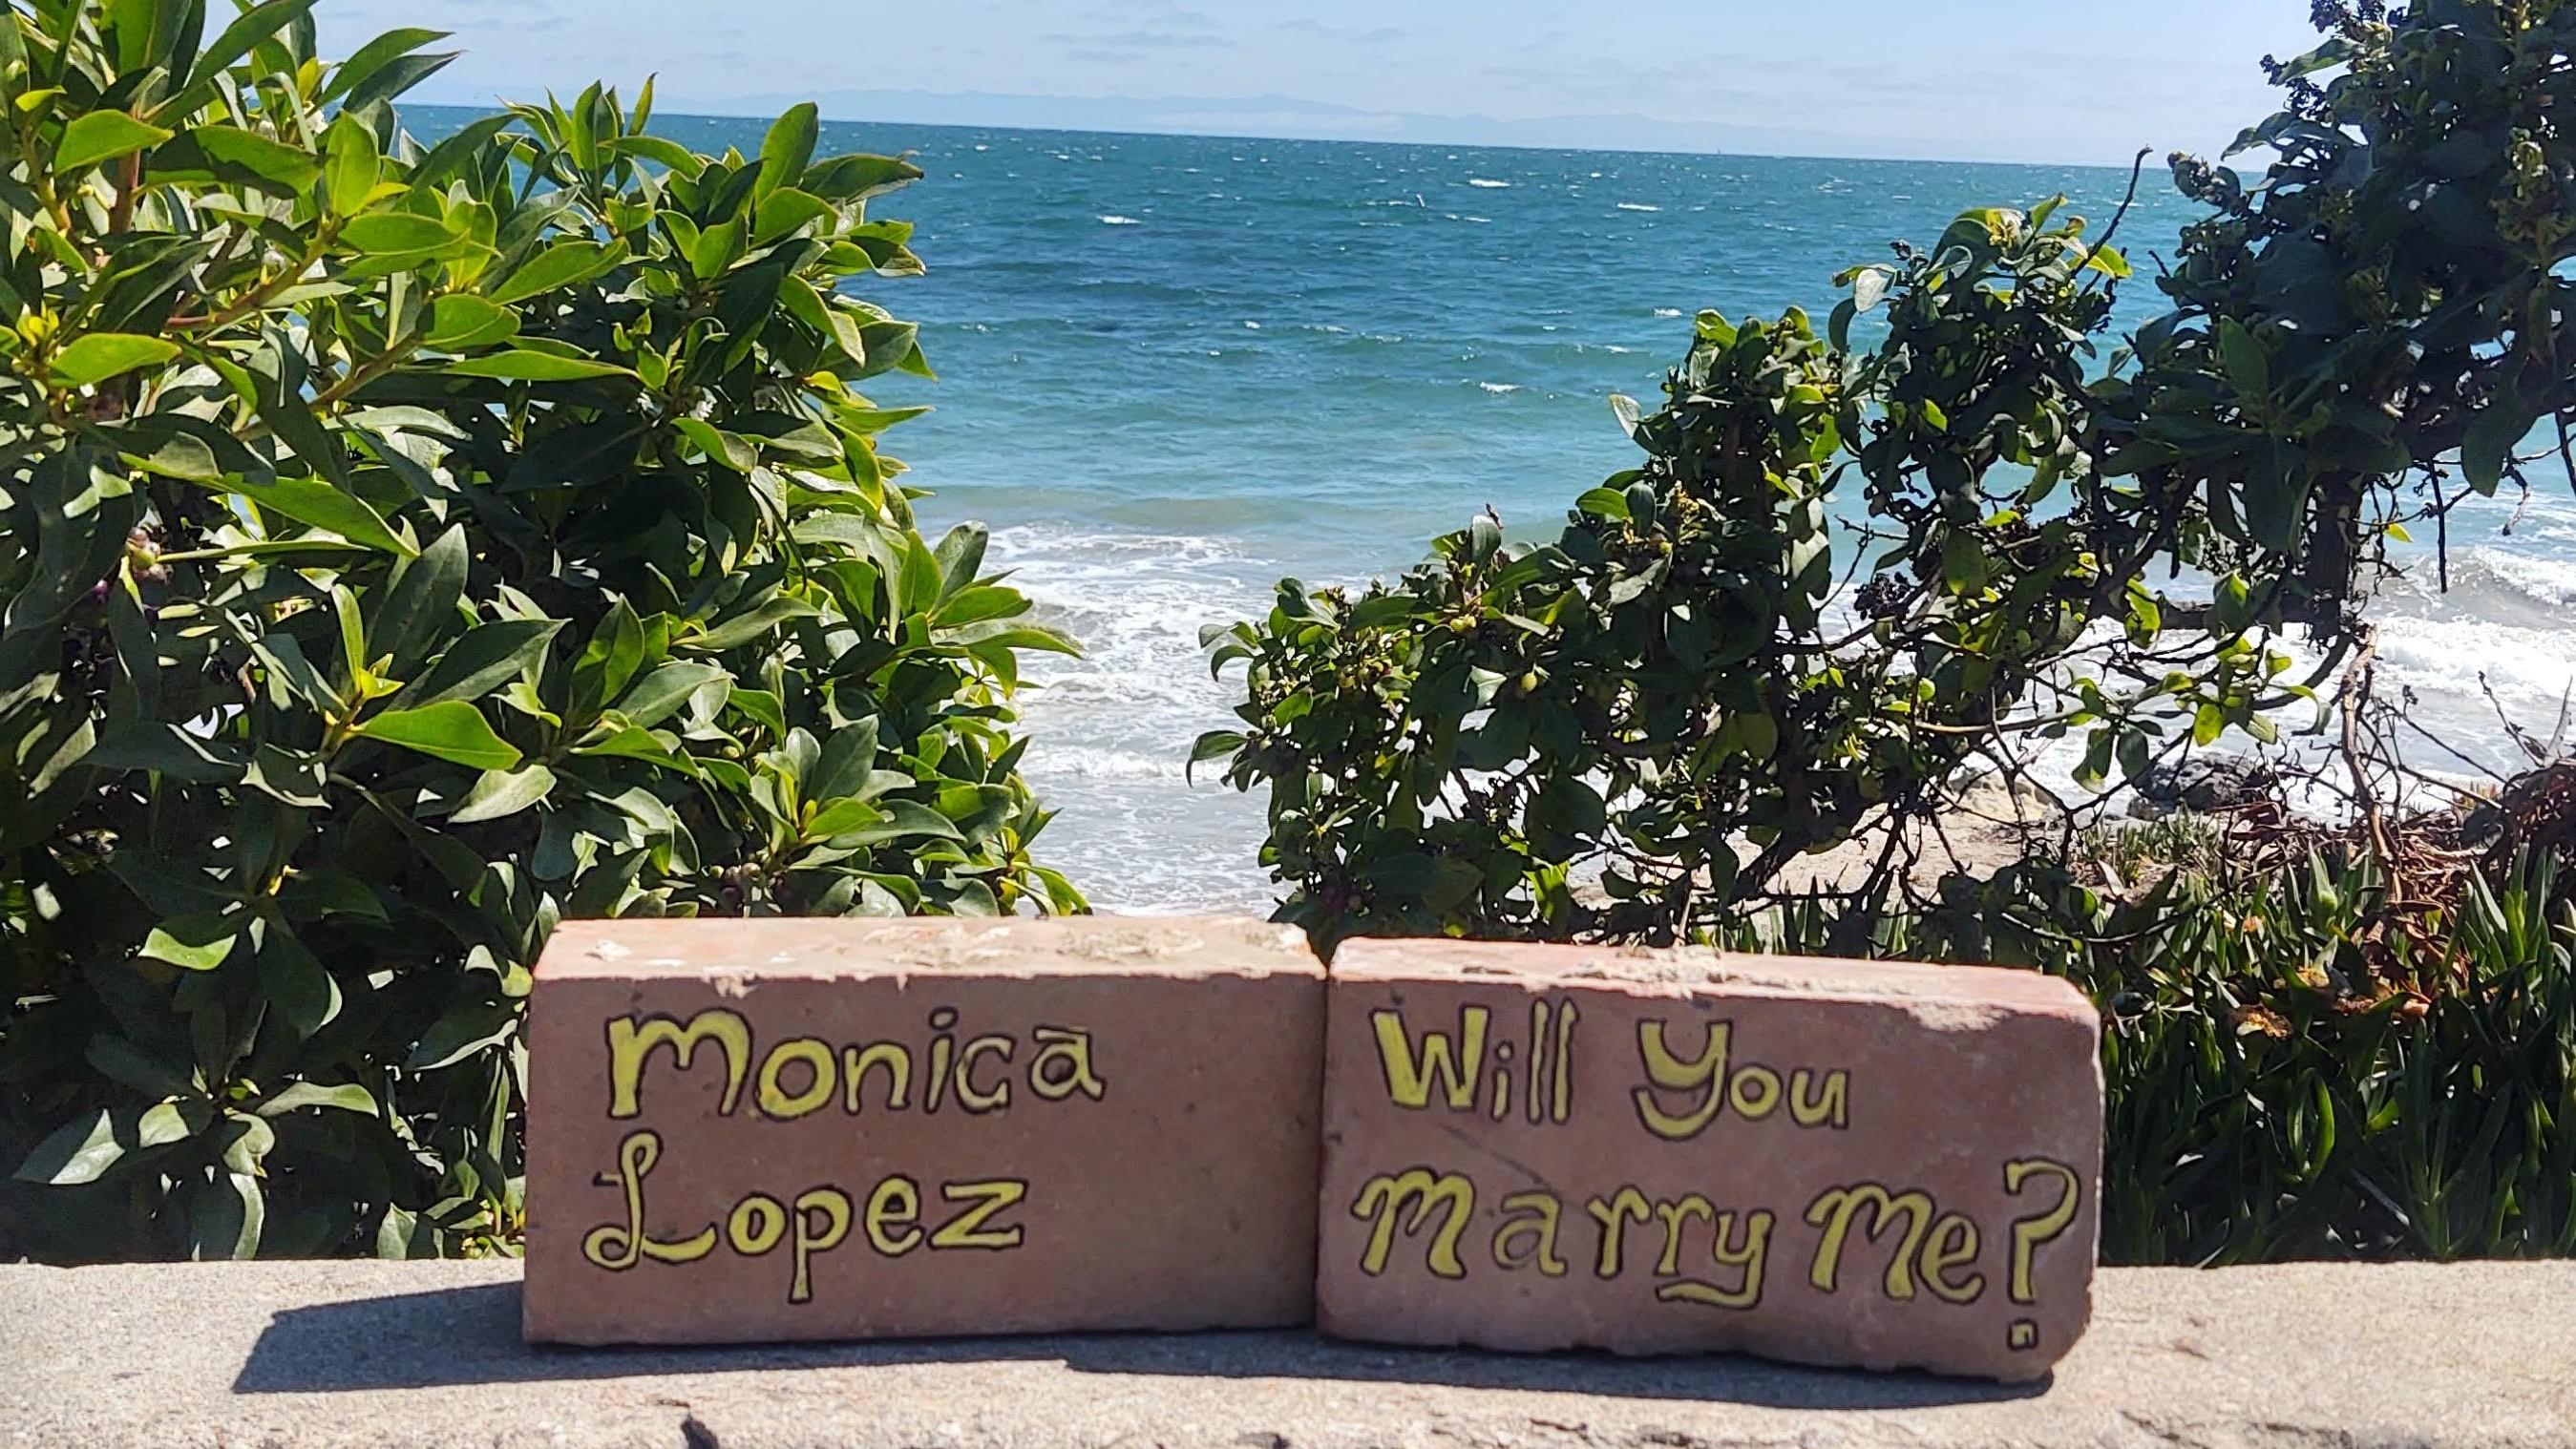 Monica
Lopez
Will You
Marry Me?